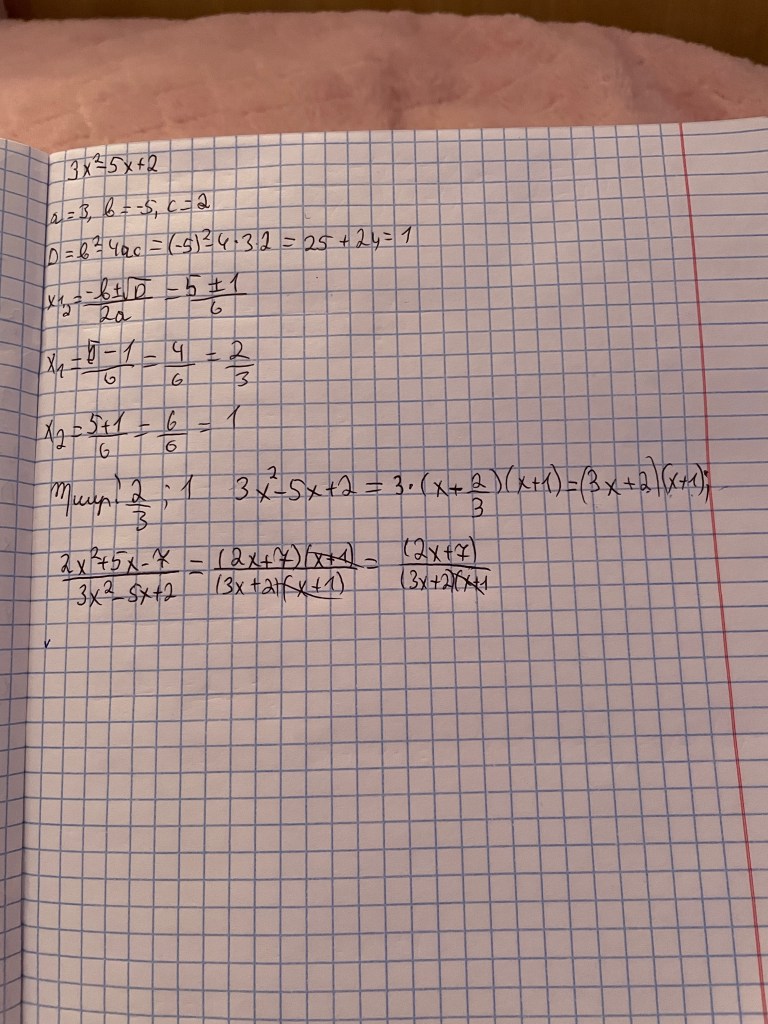 3x²-5x+2
a=3, b=-5, c=2
D=b²-4ac=(-5)²-4·3·2=25+24=1
x₁,₂=(-b±√D)/2a=(5±1)/6
x₁=(5-1)/6=4/6=2/3
x₂=(5+1)/6=6/6=1
2/3; 1 3x²-5x+2=3·(x+2/3)(x+1)=(3x+2)(x+1);
(2x²+5x-7)/(3x²-5x+2)=((2x+7)(x+1))/((3x+2)(x+1))=(2x+7)/((3x+2)(x+1